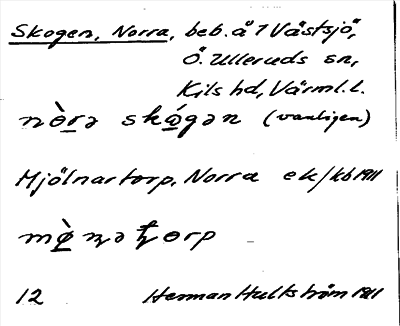 Skogen, Norra, beb. å 1 Västsjö,
Ö. Ulleruds sn,
Kils hd, Värml. l.
nòrə skógən (vanligen)
Mjölnartorp, Norra ek/kb 1911
12 Herman Hultström 1911